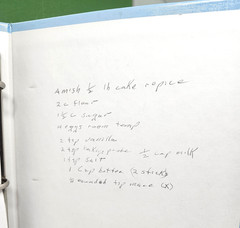 Amish ½ lb cake recipe
2 c flour
1⅓ c sugar
4 eggs room temp
2 tsp vanilla
2 tsp baking powder ½ cup milk
1 tsp salt
1 cup butter (2 sticks)
2 rounded tsp mace (x)